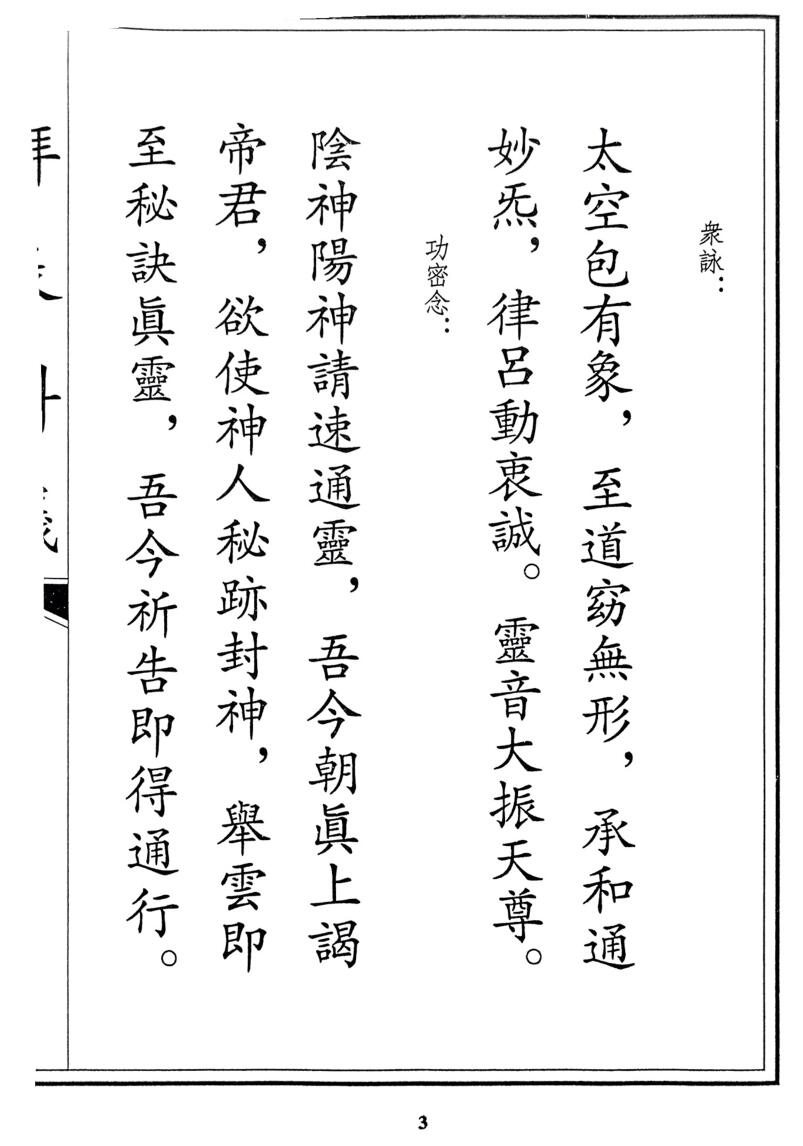 衆詠：
太空包有象，至道窈無形，承和通
妙炁，律呂動衷誠。靈音大振天尊。
功密念：
陰神陽神請速通靈，吾今朝眞上謁
帝君，欲使神人秘跡封神，舉雲即
至秘訣眞靈，吾今祈告即得通行。
3